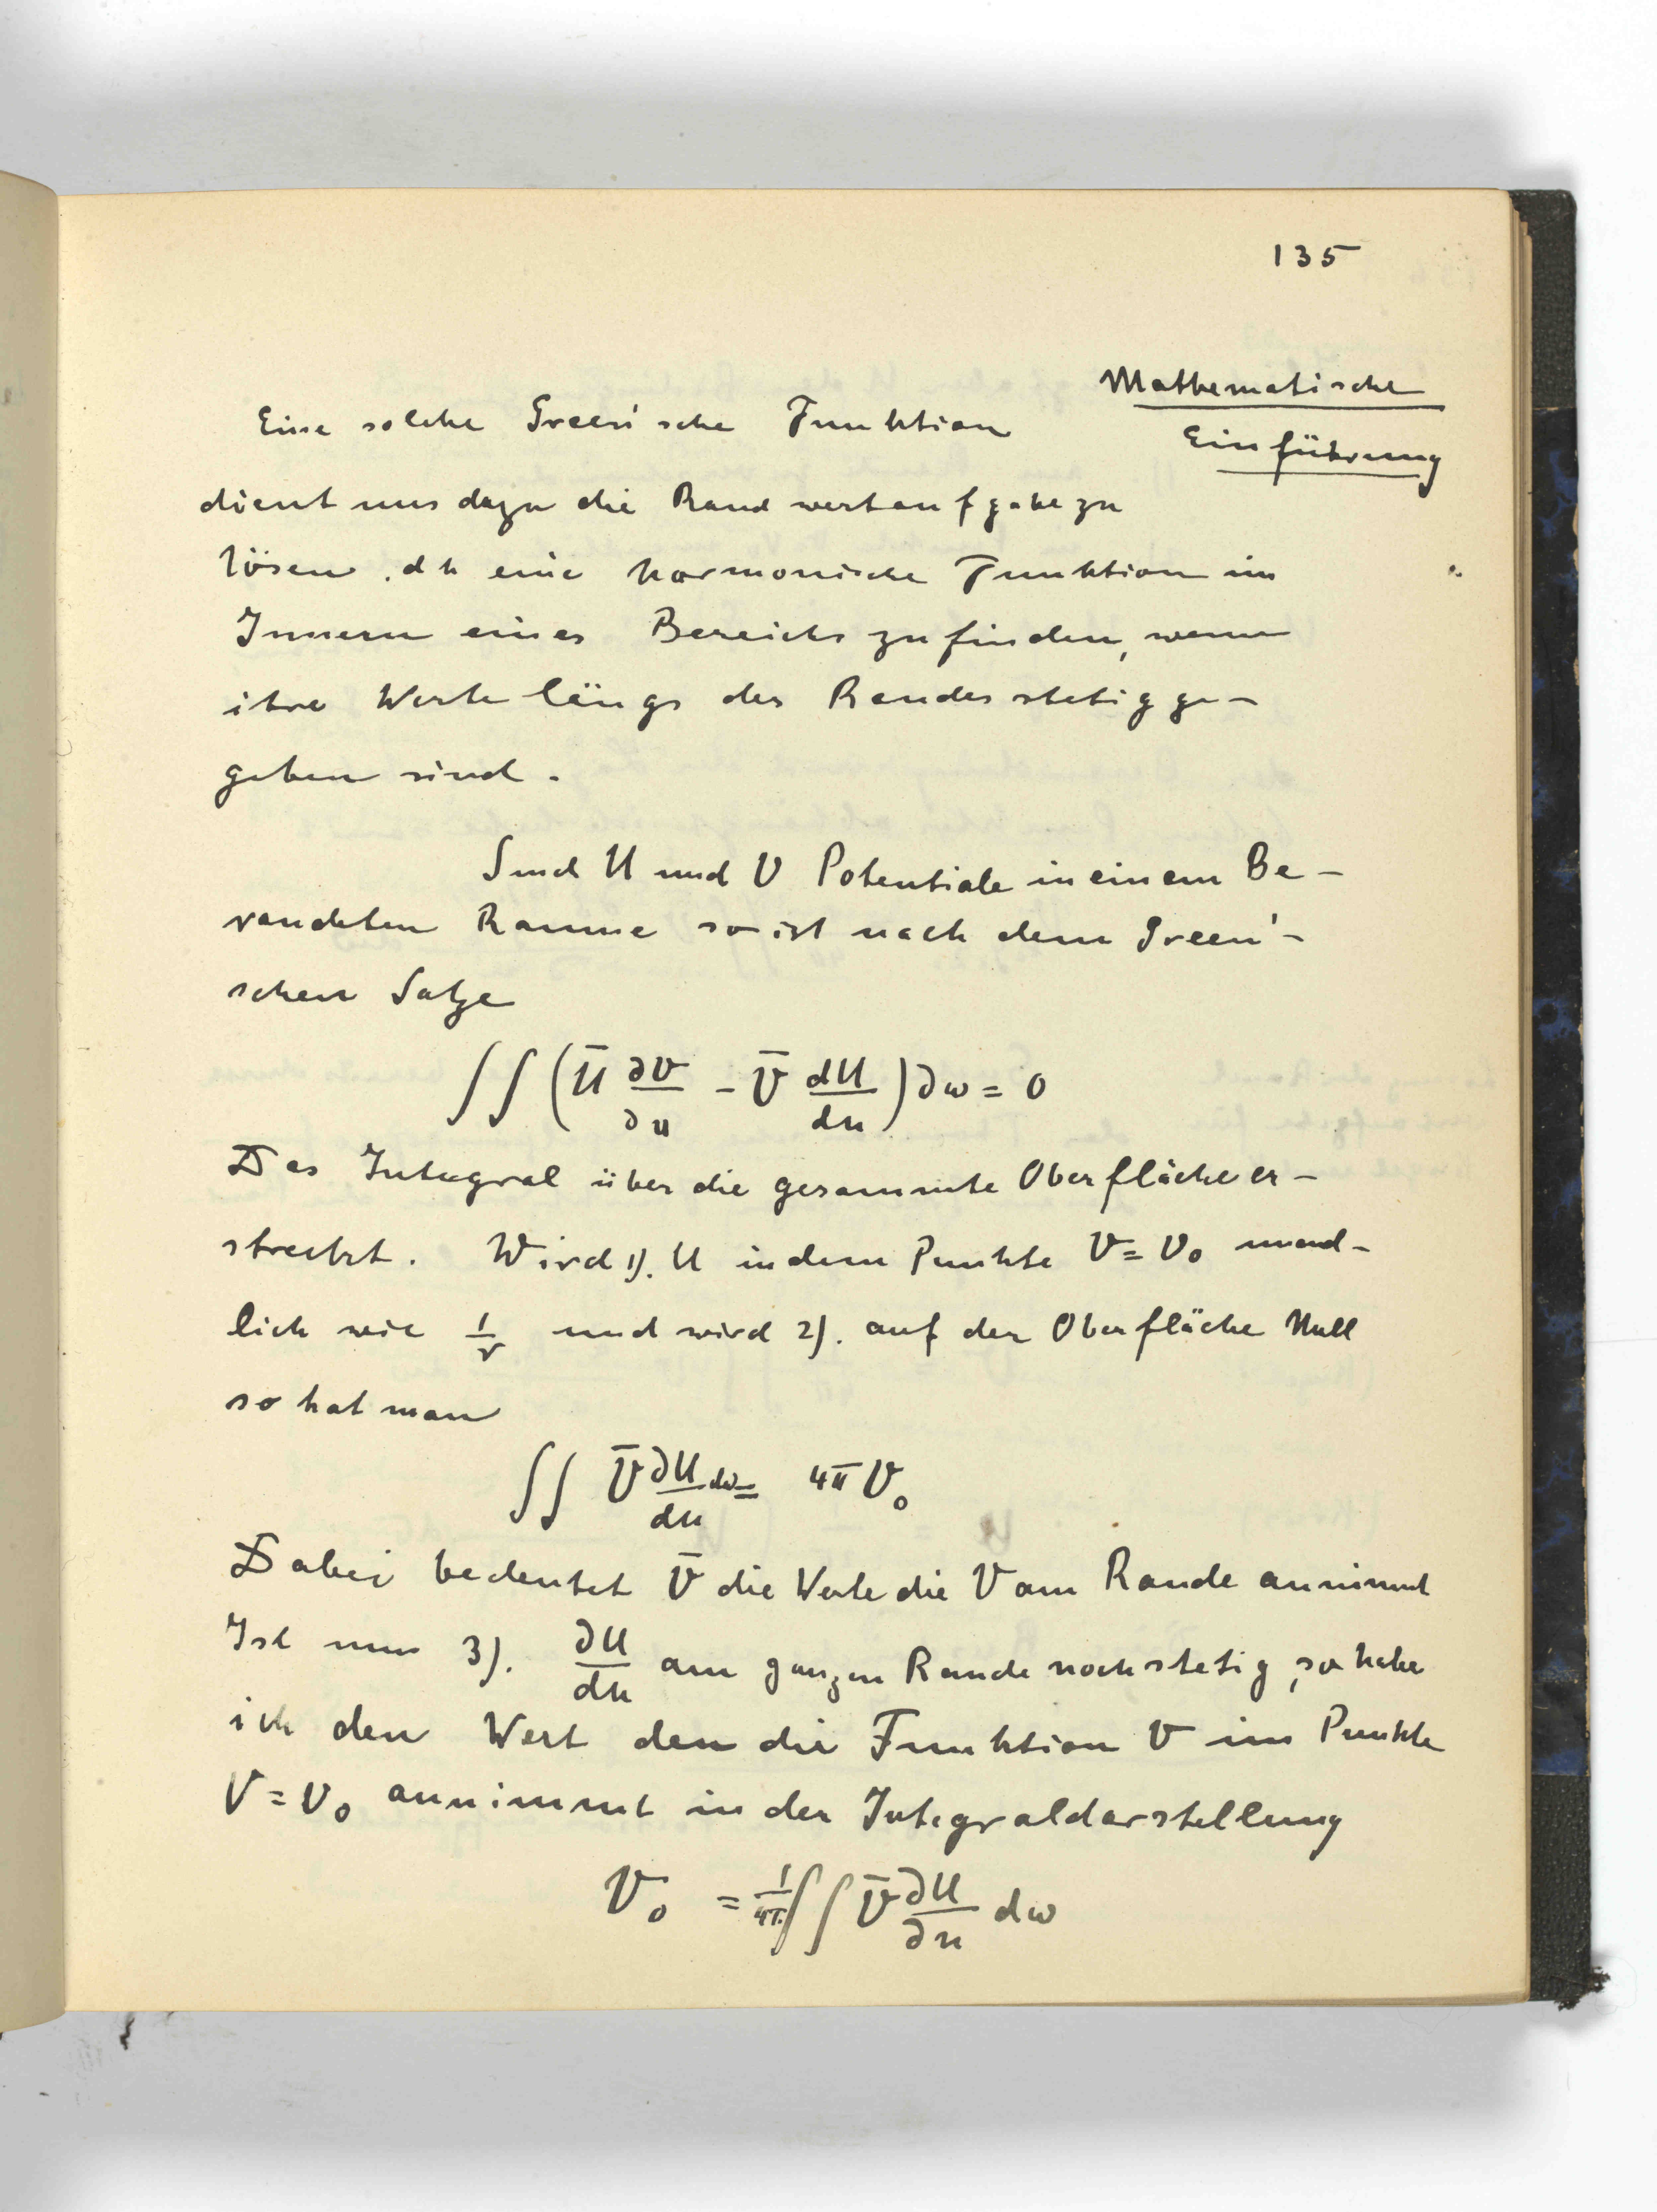 135
Mathematische
Einführung
Eine solche Green'sche Funktion
dient uns dazu die Randwertaufgabe zu
lösen, d h eine harmonische Funktion im
Innern eines Bereichs zu finden, wenn
ihre Werte längs des Randes stetig ge-
geben sind.
Sind U und V Potentiale in einem Be-
randeten Raume so ist nach dem Green'-
schen Satze
∫∫ (Ū ∂V/∂n - V̄ dU/dn) ∂ω = 0
Das Integral über die gesammte Oberfläche er-
streckt. Wird 1). U in dem Punkte V = V₀ unend-
lich wie 1/r und wird 2). auf der Oberfläche Null
so hat man
∫∫ V̄ ∂U/dn dω = 4π V₀
Dabei bedeutet V̄ die Werte die V am Rande annimmt
Ist nun 3). ∂U/dn am ganzen Rande noch stetig, so habe
ich den Wert den die Funktion V im Punkte
V = V₀ annimmt in der Integraldarstellung
V₀ = 1/4π ∫∫ V̄ ∂U/∂n dω